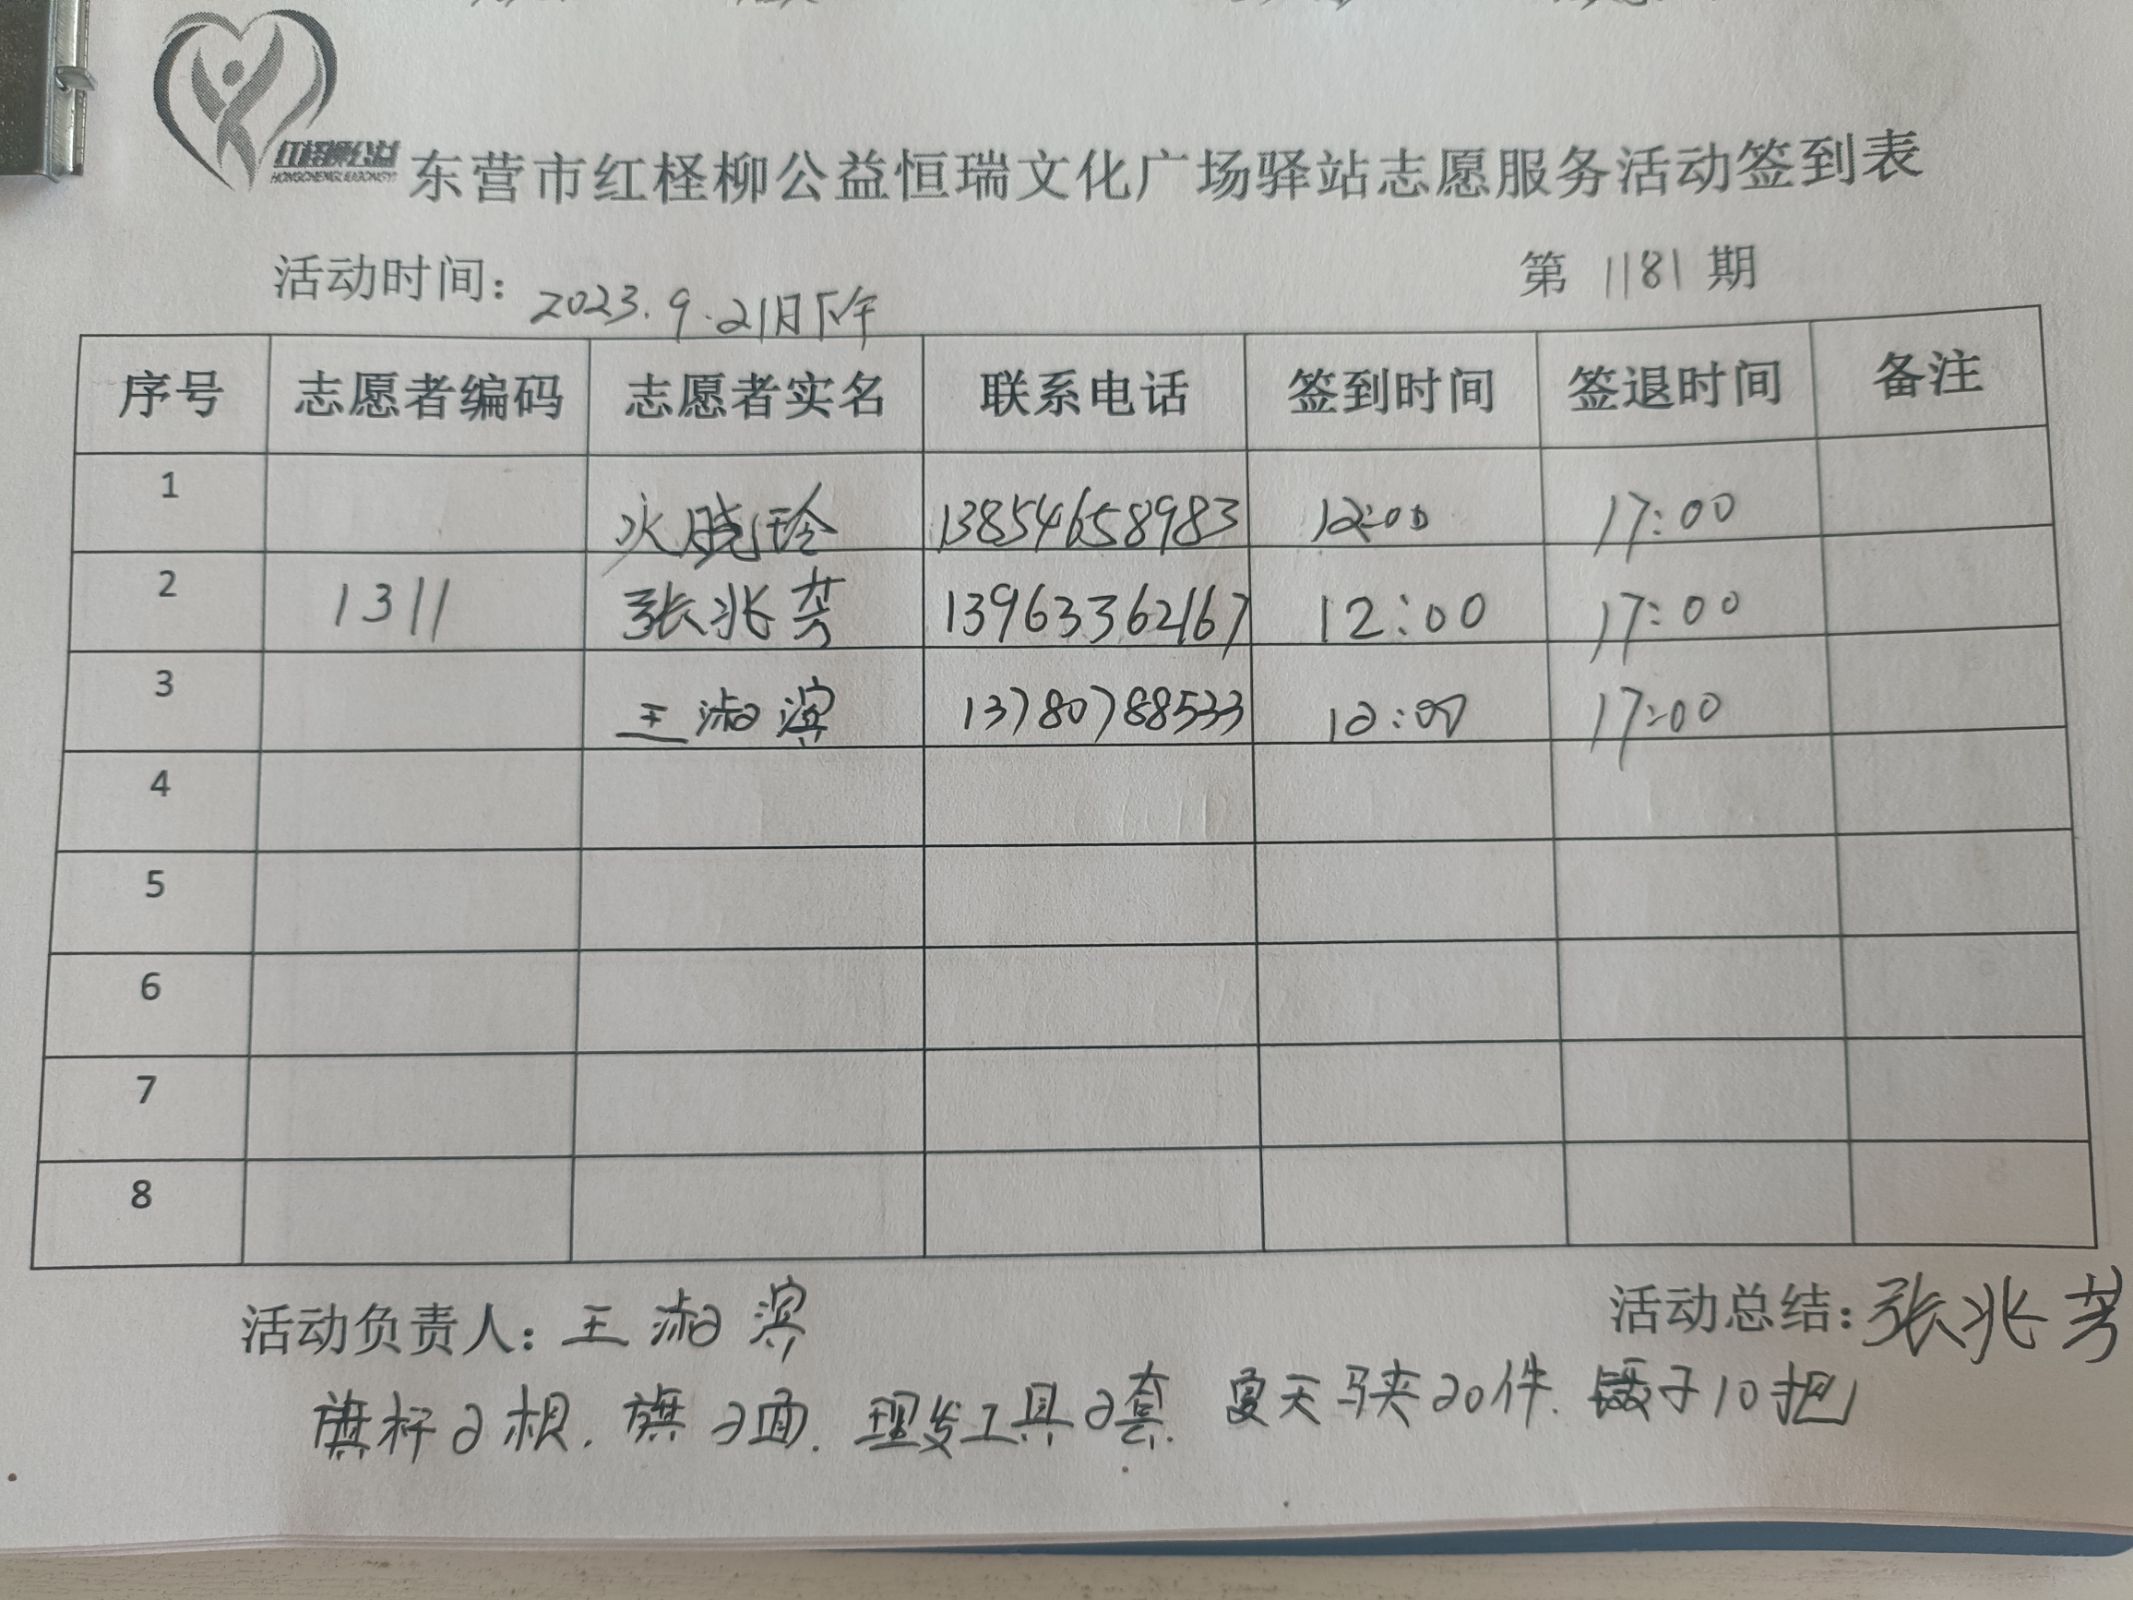 红柽柳公益
东营市红柽柳公益恒瑞文化广场驿站志愿服务活动签到表
活动时间：2023.9.21日下午 第 1181 期
序号 志愿者编码 志愿者实名 联系电话 签到时间 签退时间 备注
1 晓玲 13854658983 12:00 17:00
2 1311 张兆芳 13963362167 12:00 17:00
3 王淑滨 13780788533 12:00 17:00
4
5
6
7
8
活动负责人：王淑滨 活动总结：张兆芳
旗杆2根.旗2面.理发工具2套.夏天马夹20件.镊子10把